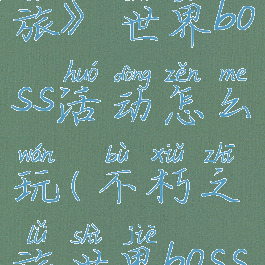 旅》 世界bo
huó dòng zěn me
ss活动怎么
wán bù xiǔ zhī
玩(不朽之
lǚ shì jiè
旅世界boss